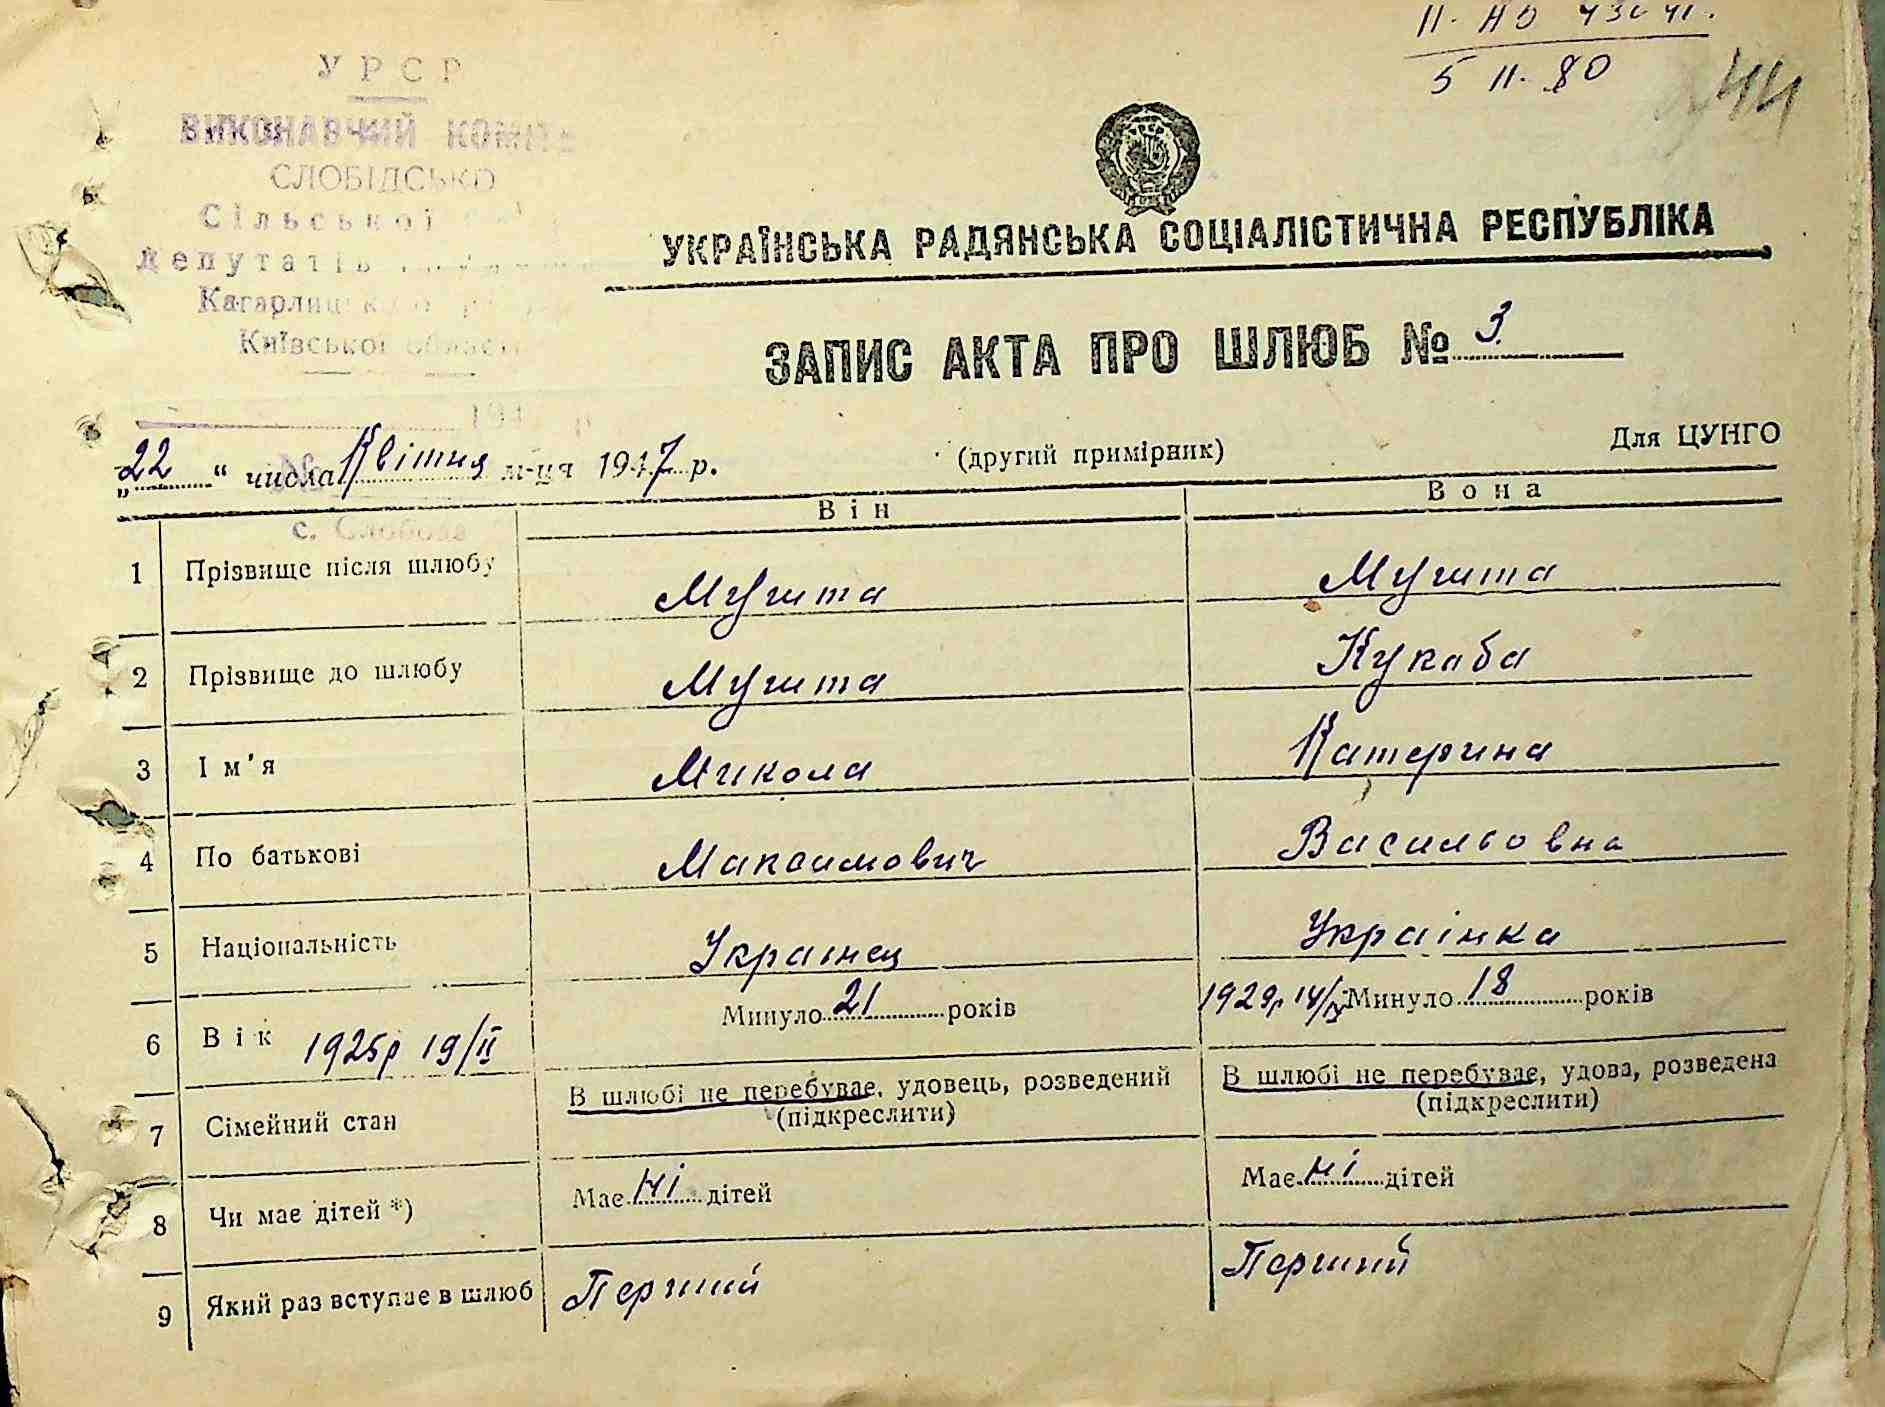 5 II. 80
44
УРСР
ВИКОНАВЧИЙ КОМІТЕ
СЛОБІДСЬКО
Сільської
депутатів
Кагарлицько
Київської області
194 р
№
с. Слобода
УКРАЇНСЬКА РАДЯНСЬКА СОЦІАЛІСТИЧНА РЕСПУБЛІКА
ЗАПИС АКТА ПРО ШЛЮБ № 3
„22“ числа Квітня м-ця 1947 р.
(другий примірник)
Для ЦУНГО
Він Вона
1 Прізвище після шлюбу Мушта Мушта
2 Прізвище до шлюбу Мушта Кукаба
3 Ім'я Микола Катерина
4 По батькові Максимович Васильовна
5 Національність Украінец Украінка
6 Вік 1925р 19/II Минуло 21 років 1929р 14/IX Минуло 18 років
7 Сімейний стан В шлюбі не перебуває, удовець, розведений (підкреслити) В шлюбі не перебуває, удова, розведена (підкреслити)
8 Чи має дітей *) Має ні дітей Має ні дітей
9 Який раз вступає в шлюб Перший Перший